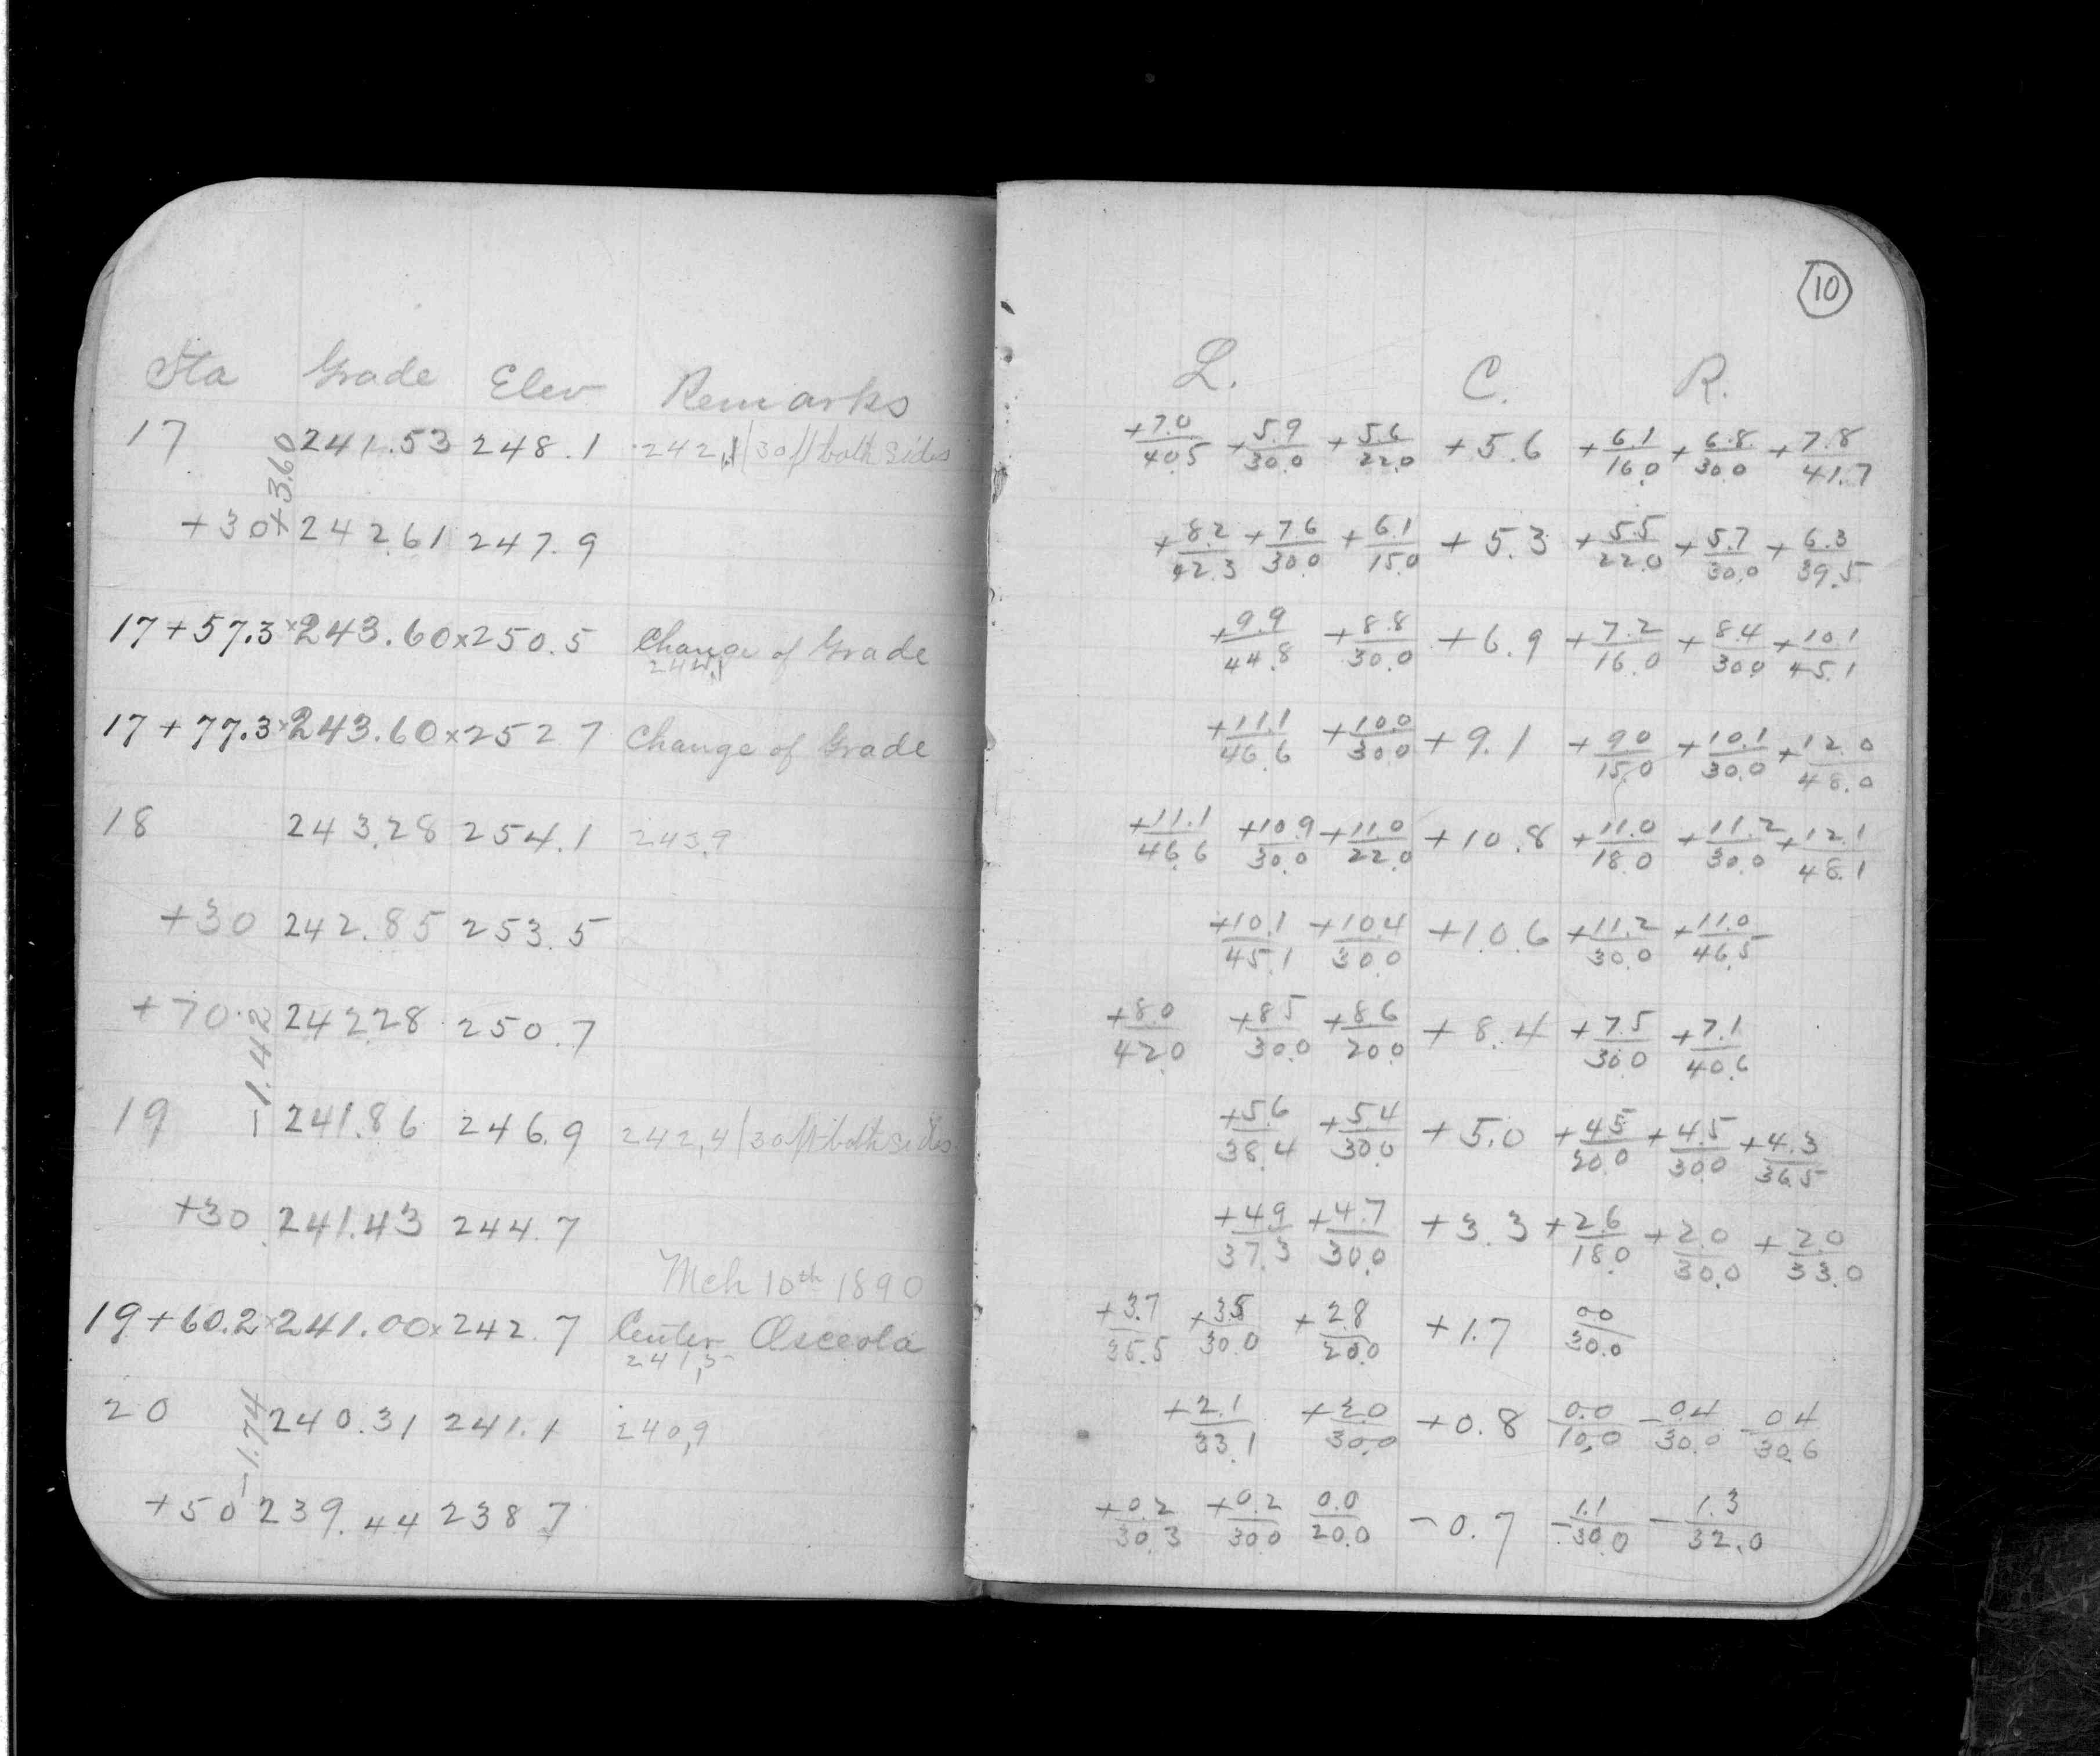 10
Sta Grade Elev Remarks
17 241.53 248.1 242.1 | 30 ft both sides
+3.60
+30 242.61 247.9
17+57.3 × 243.60 × 250.5 Change of Grade
244.1
17+77.3 × 243.60 × 252 7 Change of Grade
18 243.28 254.1 243.9
+30 242.85 253.5
+70 242.28 250.7
-1.42
19 241.86 246.9 242,4 | 30 ft both sides
+30 241.43 244.7
Mch 10th 1890
19+60.2 × 241.00 × 242.7 Center Osceola
241,5
20 240.31 241.1 240,9
-1.74
+50 239.44 238 7
L. C. R.
+7.0/40.5 +5.9/30.0 +5.6/22.0 +5.6 +6.1/16.0 +6.8/30.0 +7.8/41.7
+8.2/42.3 +7.6/30.0 +6.1/15.0 +5.3 +5.5/22.0 +5.7/30.0 +6.3/39.5
+9.9/44.8 +8.8/30.0 +6.9 +7.2/16.0 +8.4/30.0 +10.1/45.1
+11.1/46.6 +10.0/30.0 +9.1 +9.0/15.0 +10.1/30.0 +12.0/48.0
+11.1/46.6 +10.9/30.0 +11.0/22.0 +10.8 +11.0/18.0 +11.2/30.0 +12.1/48.1
+10.1/45.1 +10.4/30.0 +10.6 +11.2/30.0 +11.0/46.5
+8.0/42.0 +8.5/30.0 +8.6/20.0 +8.4 +7.5/30.0 +7.1/40.6
+5.6/38.4 +5.4/30.0 +5.0 +4.5/20.0 +4.5/30.0 +4.3/36.5
+4.9/37.3 +4.7/30.0 +3.3 +2.6/18.0 +2.0/30.0 +2.0/33.0
+3.7/35.5 +3.5/30.0 +2.8/20.0 +1.7 0.0/30.0
+2.1/33.1 +2.0/30.0 +0.8 0.0/10.0 -0.4/30.0 -0.4/30.6
+0.2/30.3 +0.2/30.0 0.0/20.0 -0.7 -1.1/30.0 -1.3/32.0